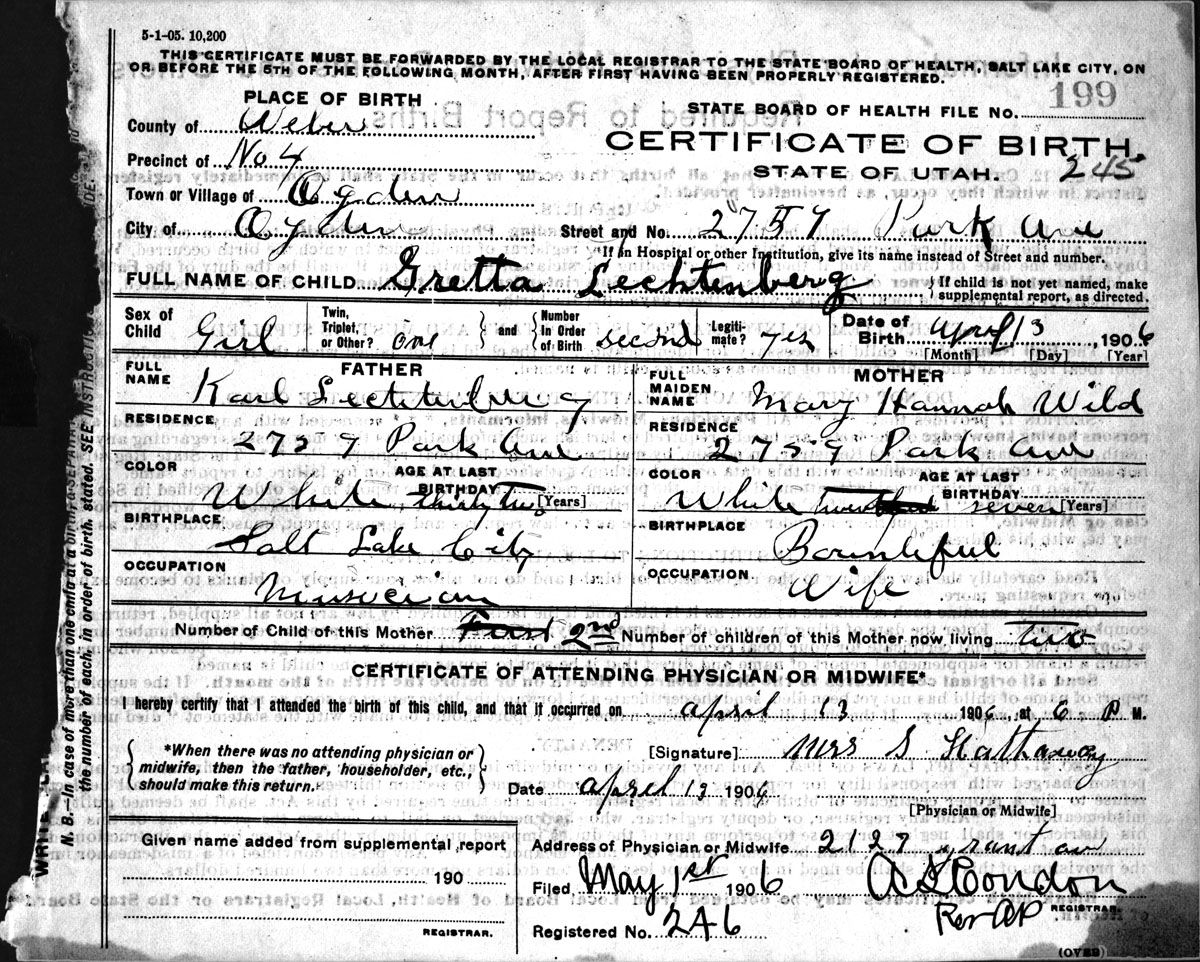 5-1-05. 10,200
THIS CERTIFICATE MUST BE FORWARDED BY THE LOCAL REGISTRAR TO THE STATE BOARD OF HEALTH, SALT LAKE CITY, ON
OR BEFORE THE 5TH OF THE FOLLOWING MONTH, AFTER FIRST HAVING BEEN PROPERLY REGISTERED.
PLACE OF BIRTH
STATE BOARD OF HEALTH FILE No. 199
County of Weber
CERTIFICATE OF BIRTH
Precinct of No 4
STATE OF UTAH. 245
Town or Village of Ogden
City of Ogden Street and No. 2759 Park Ave
*If an Hospital or other Institution, give its name instead of Street and number.
FULL NAME OF CHILD Gretta Lechtenberg { If child is not yet named, make
supplemental report, as directed.
Sex of Child Girl Twin, Triplet, or Other? one and Number In Order of Birth second Legiti-mate? yes Date of Birth April 13, 1906
[Month] [Day] [Year]
FATHER
FULL NAME Karl Lechtenberg
RESIDENCE
2759 Park Ave
COLOR AGE AT LAST
White BIRTHDAY thirty two [Years]
BIRTHPLACE
Salt Lake City
OCCUPATION
Musician
MOTHER
FULL MAIDEN NAME Mary Hannah Wild
RESIDENCE
2759 Park Ave
COLOR AGE AT LAST
White BIRTHDAY seven [Years]
BIRTHPLACE
Bountiful
OCCUPATION
Wife
Number of Child of this Mother First 2nd Number of children of this Mother now living two
CERTIFICATE OF ATTENDING PHYSICIAN OR MIDWIFE*
I hereby certify that I attended the birth of this child, and that it occurred on april 13 1906, at 6 P M.
*When there was no attending physician or
midwife, then the father, householder, etc.,
should make this return.
[Signature] Mrs S Hathaway
Date april 13 1906
[Physician or Midwife]
Given name added from supplemental report
190
REGISTRAR.
Address of Physician or Midwife 2127 grant av
Filed May 1st 1906 A S Condon
REGISTRAR.
Registered No. 246
(OVER)
N. B.—In case of more than one child at a birth, a SEPARATE
the number of each, in order of birth, stated. SEE INSTRUCTIONS